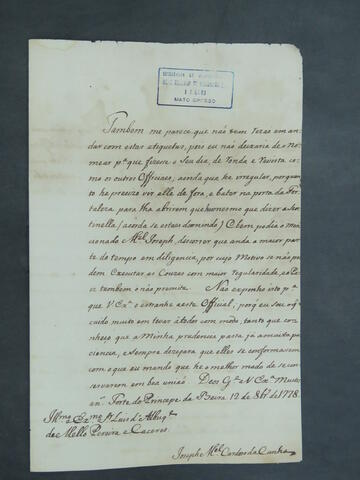 Tambem me parece que não tem rezão em an
dar com estas etiquetas, pois eu não deixaria de o no
mear p.a que fizesse o seu dia, de Ronda e Revista co
mo os outros Officiaes, ainda que he irregular, porquan
to he precizo vir elle de fora, e bater na porta da For
taleza para lha abrirem que he o mesmo que dizer a Sen
tinella (acorda se estaes dormindo) E bem podia o men
cionado M.el Joseph, descorrer que anda a maior parte
do tempo em diligencia, por cujo Motivo se não po
dem Executar as Couzas com maior regularidade, e o Pa
iz tambem o não premite. Não exponho isto p.a
que V. Ex.a estranhe a este Official, porq' eu sou o q'
cuido muito em levar a todos com modo, tanto que co
nheço que a Minha prudencia passa já a muita pa
ciencia, e sempre dezejara que elles se conformassem
com o que eu mando que he o melhor modo de se con
servarem em boa união. Deos G.e a V. Ex.a Muitos
an.s Forte do Principe da Beira 12 de 8br.o de 1778.
Ill.mo e Ex.mo S.r Luis d'Albuq.e
de Mello Pereira e Caceres.
Joseph M.el Cardoso da Cunha
MATO GROSSO